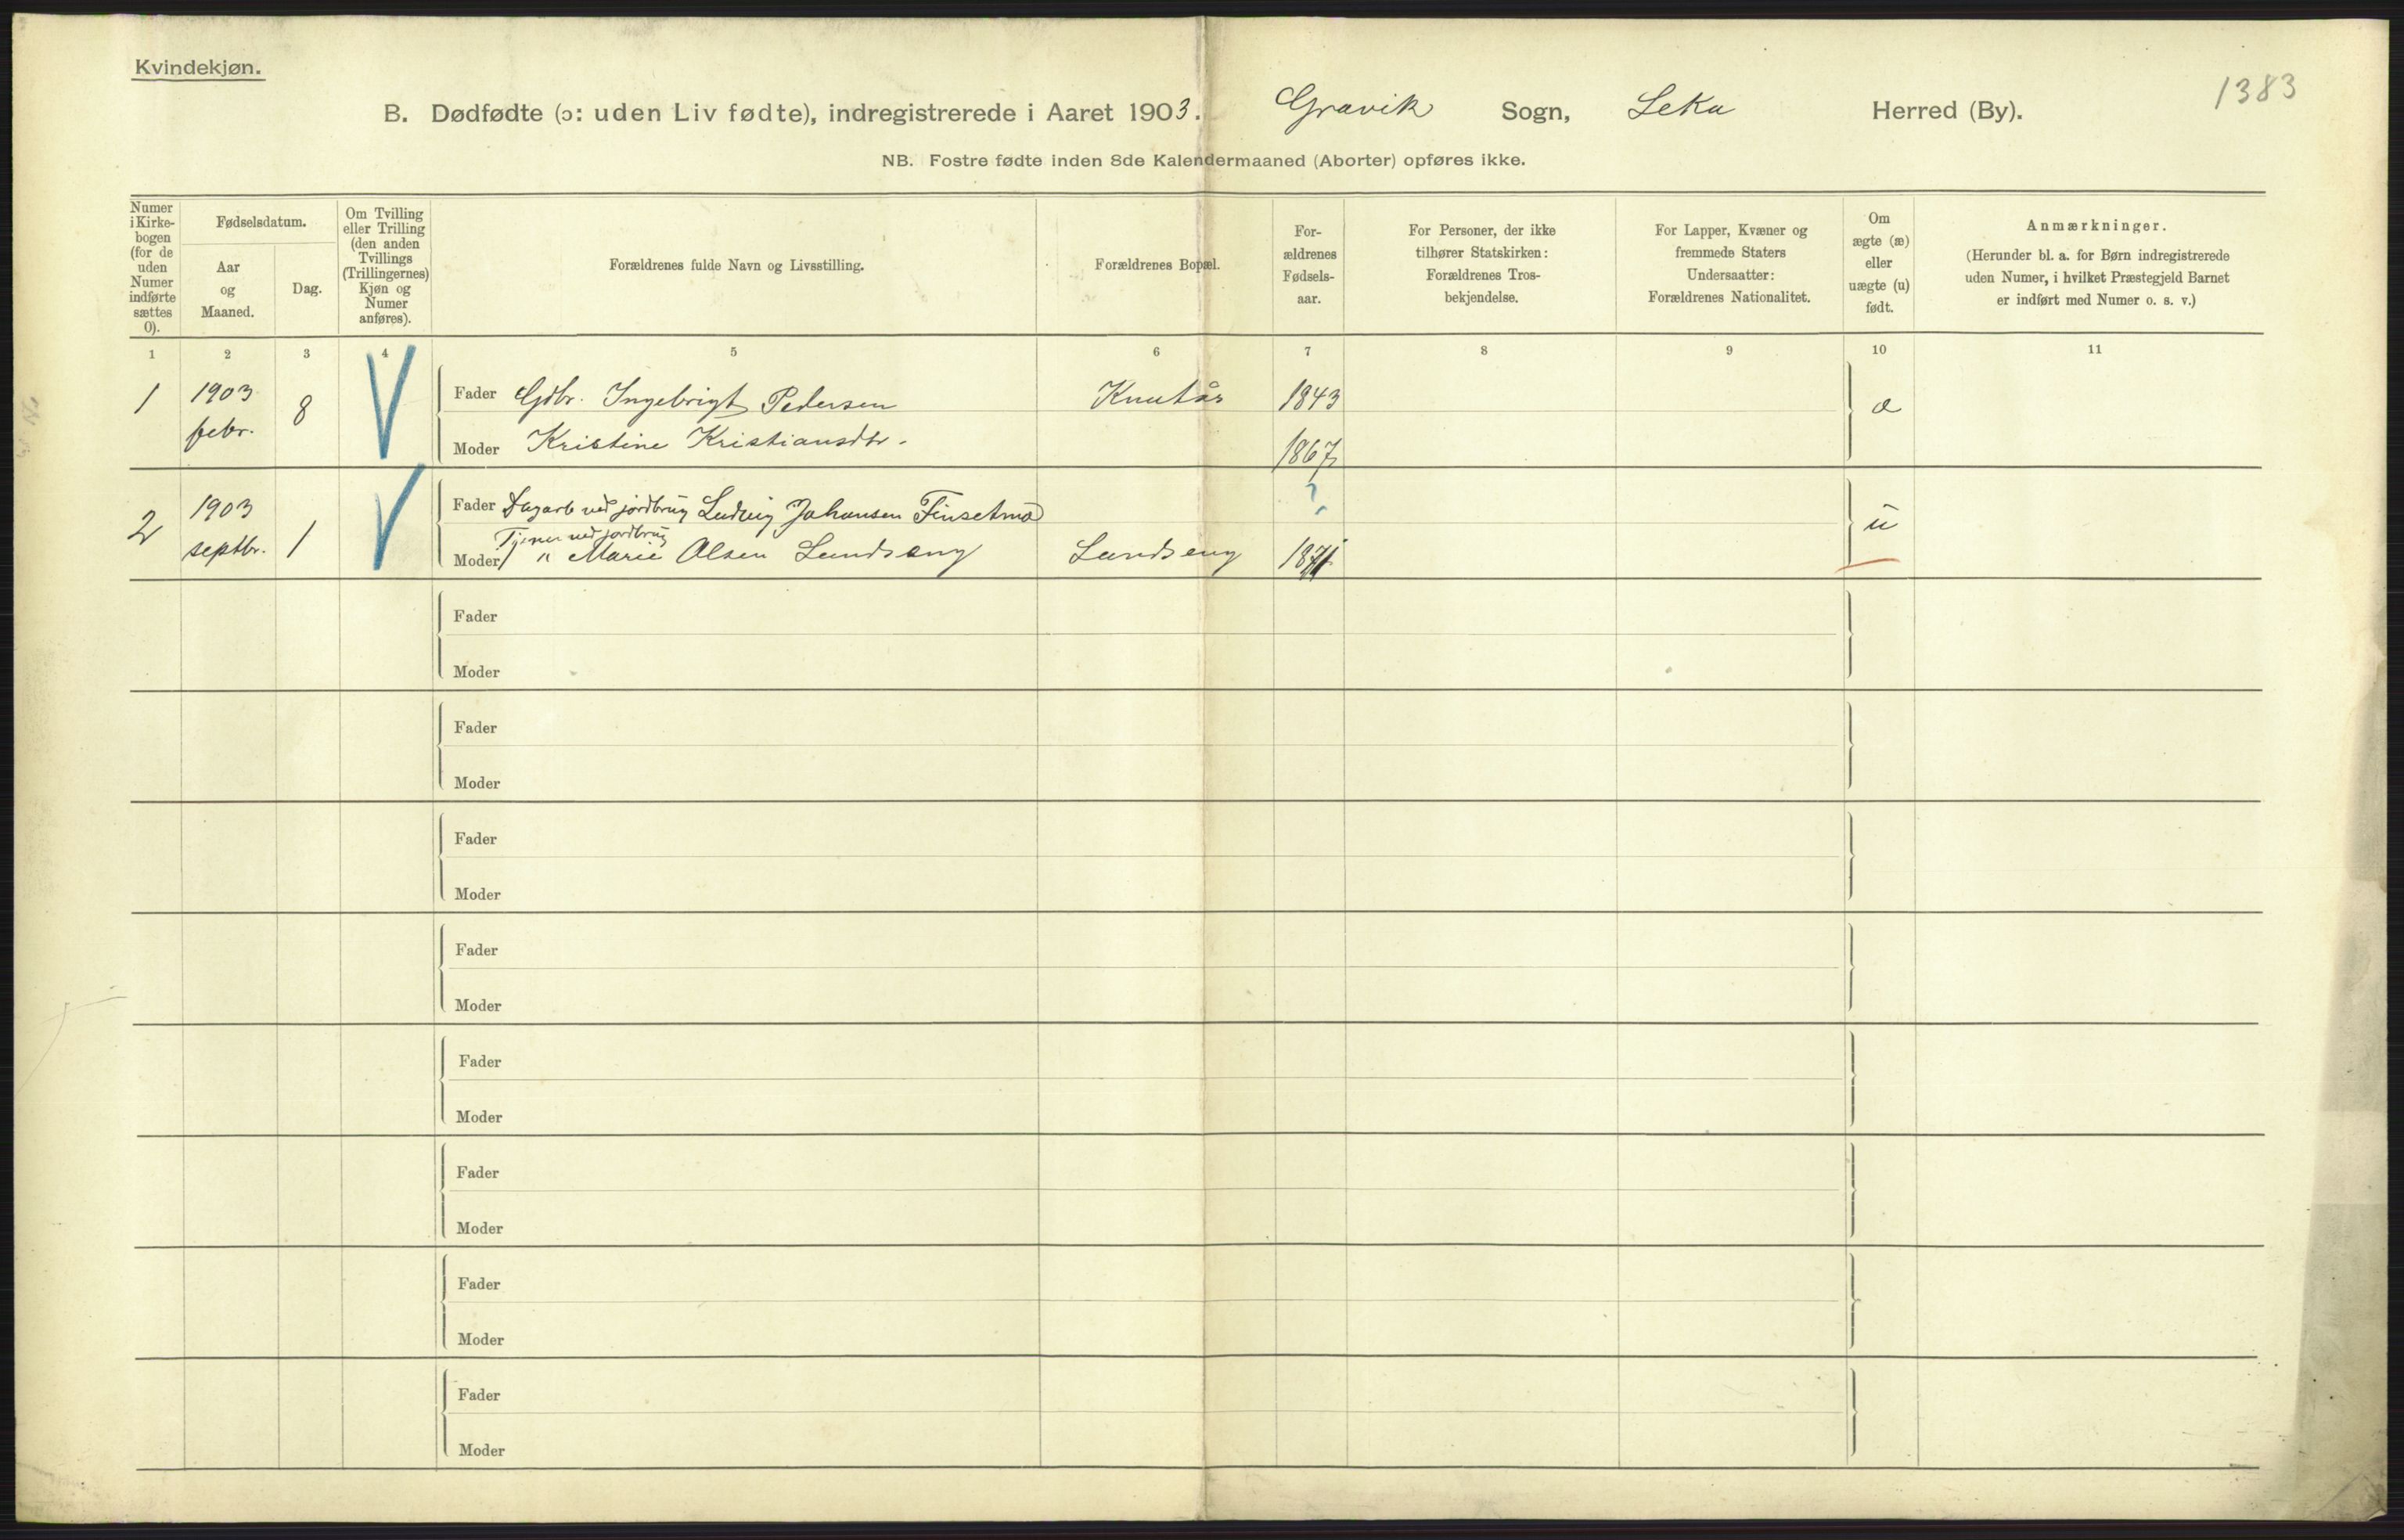 Kvindekjøn.
1383
B. Dødfødte (ɔ: uden Liv fødte), indregistrerede i Aaret 1903. Gravik Sogn, Leka Herred (By).
NB. Fostre fødte inden 8de Kalendermaaned (Aborter) opføres ikke.
Numer
i Kirke-
bogen
(for de
uden
Numer
indførte
sættes
0).
Fødselsdatum.
Aar
og
Maaned.
Dag.
Om Tvilling
eller Trilling
(den anden
Tvillings
(Trillingernes)
Kjøn og
Numer
anføres).
Forældrenes fulde Navn og Livsstilling.
Forældrenes Bopæl.
For-
ældrenes
Fødsels-
aar.
For Personer, der ikke
tilhører Statskirken:
Forældrenes Tros-
bekjendelse.
For Lapper, Kvæner og
fremmede Staters
Undersaatter:
Forældrenes Nationalitet.
Om
ægte (æ)
eller
uægte (u)
født.
Anmærkninger.
(Herunder bl. a. for Børn indregistrerede
uden Numer, i hvilket Præstegjeld Barnet
er indført med Numer o. s. v.)
1 2 3 4 5 6 7 8 9 10 11
1 1903 febr. 8
Fader Gdbr. Ingebrigt Pedersen Knutås 1843 æ
Moder Kristine Kristiansdtr. 1867
2 1903 septbr. 1
Fader Dagarb ved jordbrug Ludvig Johansen Finsetmo ? u
Tjener ved jordbrug
Moder " Marie Olsen Lundseng Lundseng
Fader
Moder
Fader
Moder
Fader
Moder
Fader
Moder
Fader
Moder
Fader
Moder
Fader
Moder
Fader
Moder